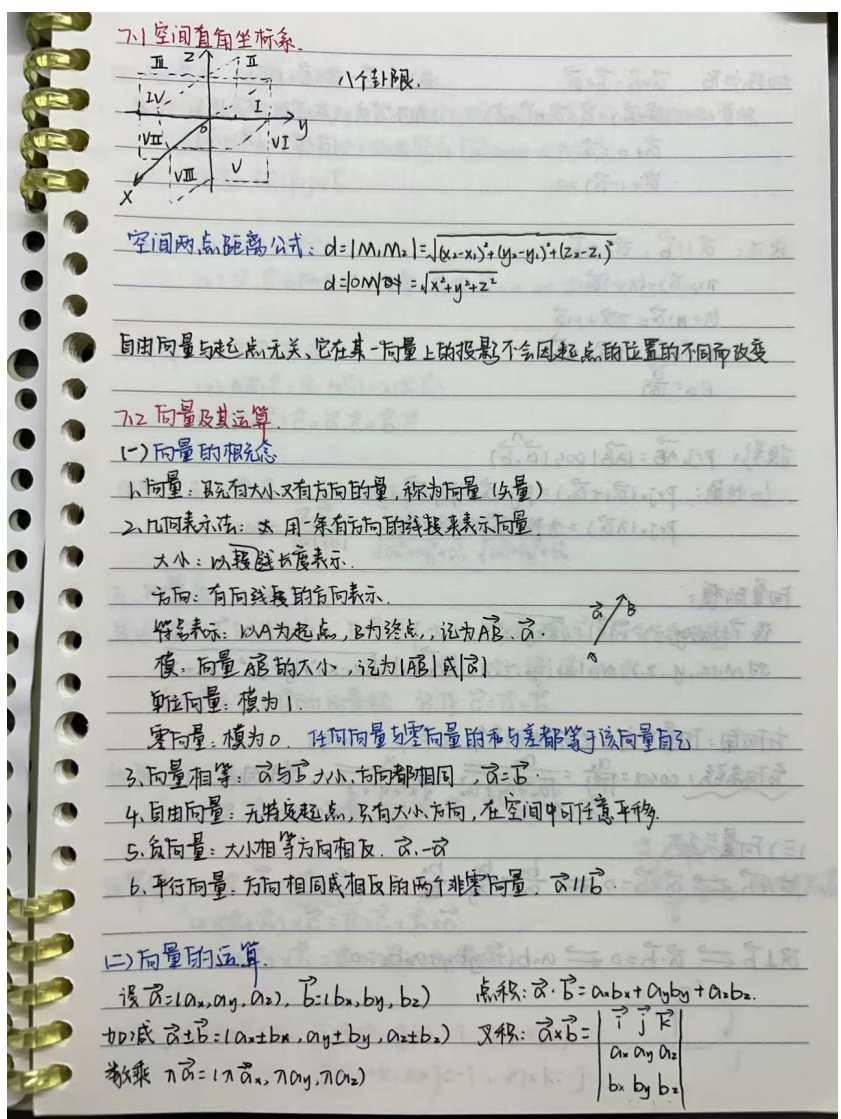 7.1 空间直角坐标系.
八个卦限.
Ⅲ z Ⅱ
Ⅳ Ⅰ
o y
Ⅶ Ⅵ
Ⅷ Ⅴ
x
空间两点距离公式: d=|M₁M₂|=√((x₂-x₁)²+(y₂-y₁)²+(z₂-z₁)²)
d=|OM|=√(x²+y²+z²)
自由向量与起点无关、它在某一向量上的投影不会因起点的位置的不同而改变
7.2 向量及其运算.
(一) 向量的概念
1. 向量: 既有大小又有方向的量, 称为向量 (矢量)
2. 几何表示法: 用一条有方向的线段来表示向量
大小: 以线长度表示.
方向: 有向线段的方向表示.
符号表示: 以A为起点, B为终点, 记为AB⃗、a⃗.
a⃗ B
A
模: 向量AB⃗的大小, 记为|AB⃗|或|a⃗|
单位向量: 模为1.
零向量: 模为0. 任何向量与零向量的和与差都等于该向量自己
3. 向量相等: a⃗与b⃗大小、方向都相同. a⃗=b⃗.
4. 自由向量: 无特定起点, 只有大小方向, 在空间中可任意平移.
5. 负向量: 大小相等方向相反. a⃗、-a⃗
6. 平行向量: 方向相同或相反的两个非零向量. a⃗//b⃗.
(二) 向量的运算.
设a⃗=(ax,ay,az), b⃗=(bx,by,bz) 点积: a⃗·b⃗=axbx+ayby+azbz.
加减 a⃗±b⃗=(ax±bx,ay±by,az±bz) 叉积: a⃗×b⃗=| i⃗ j⃗ k⃗ |
| ax ay az |
数乘 λa⃗=(λa⃗x,λay,λaz) | bx by bz |